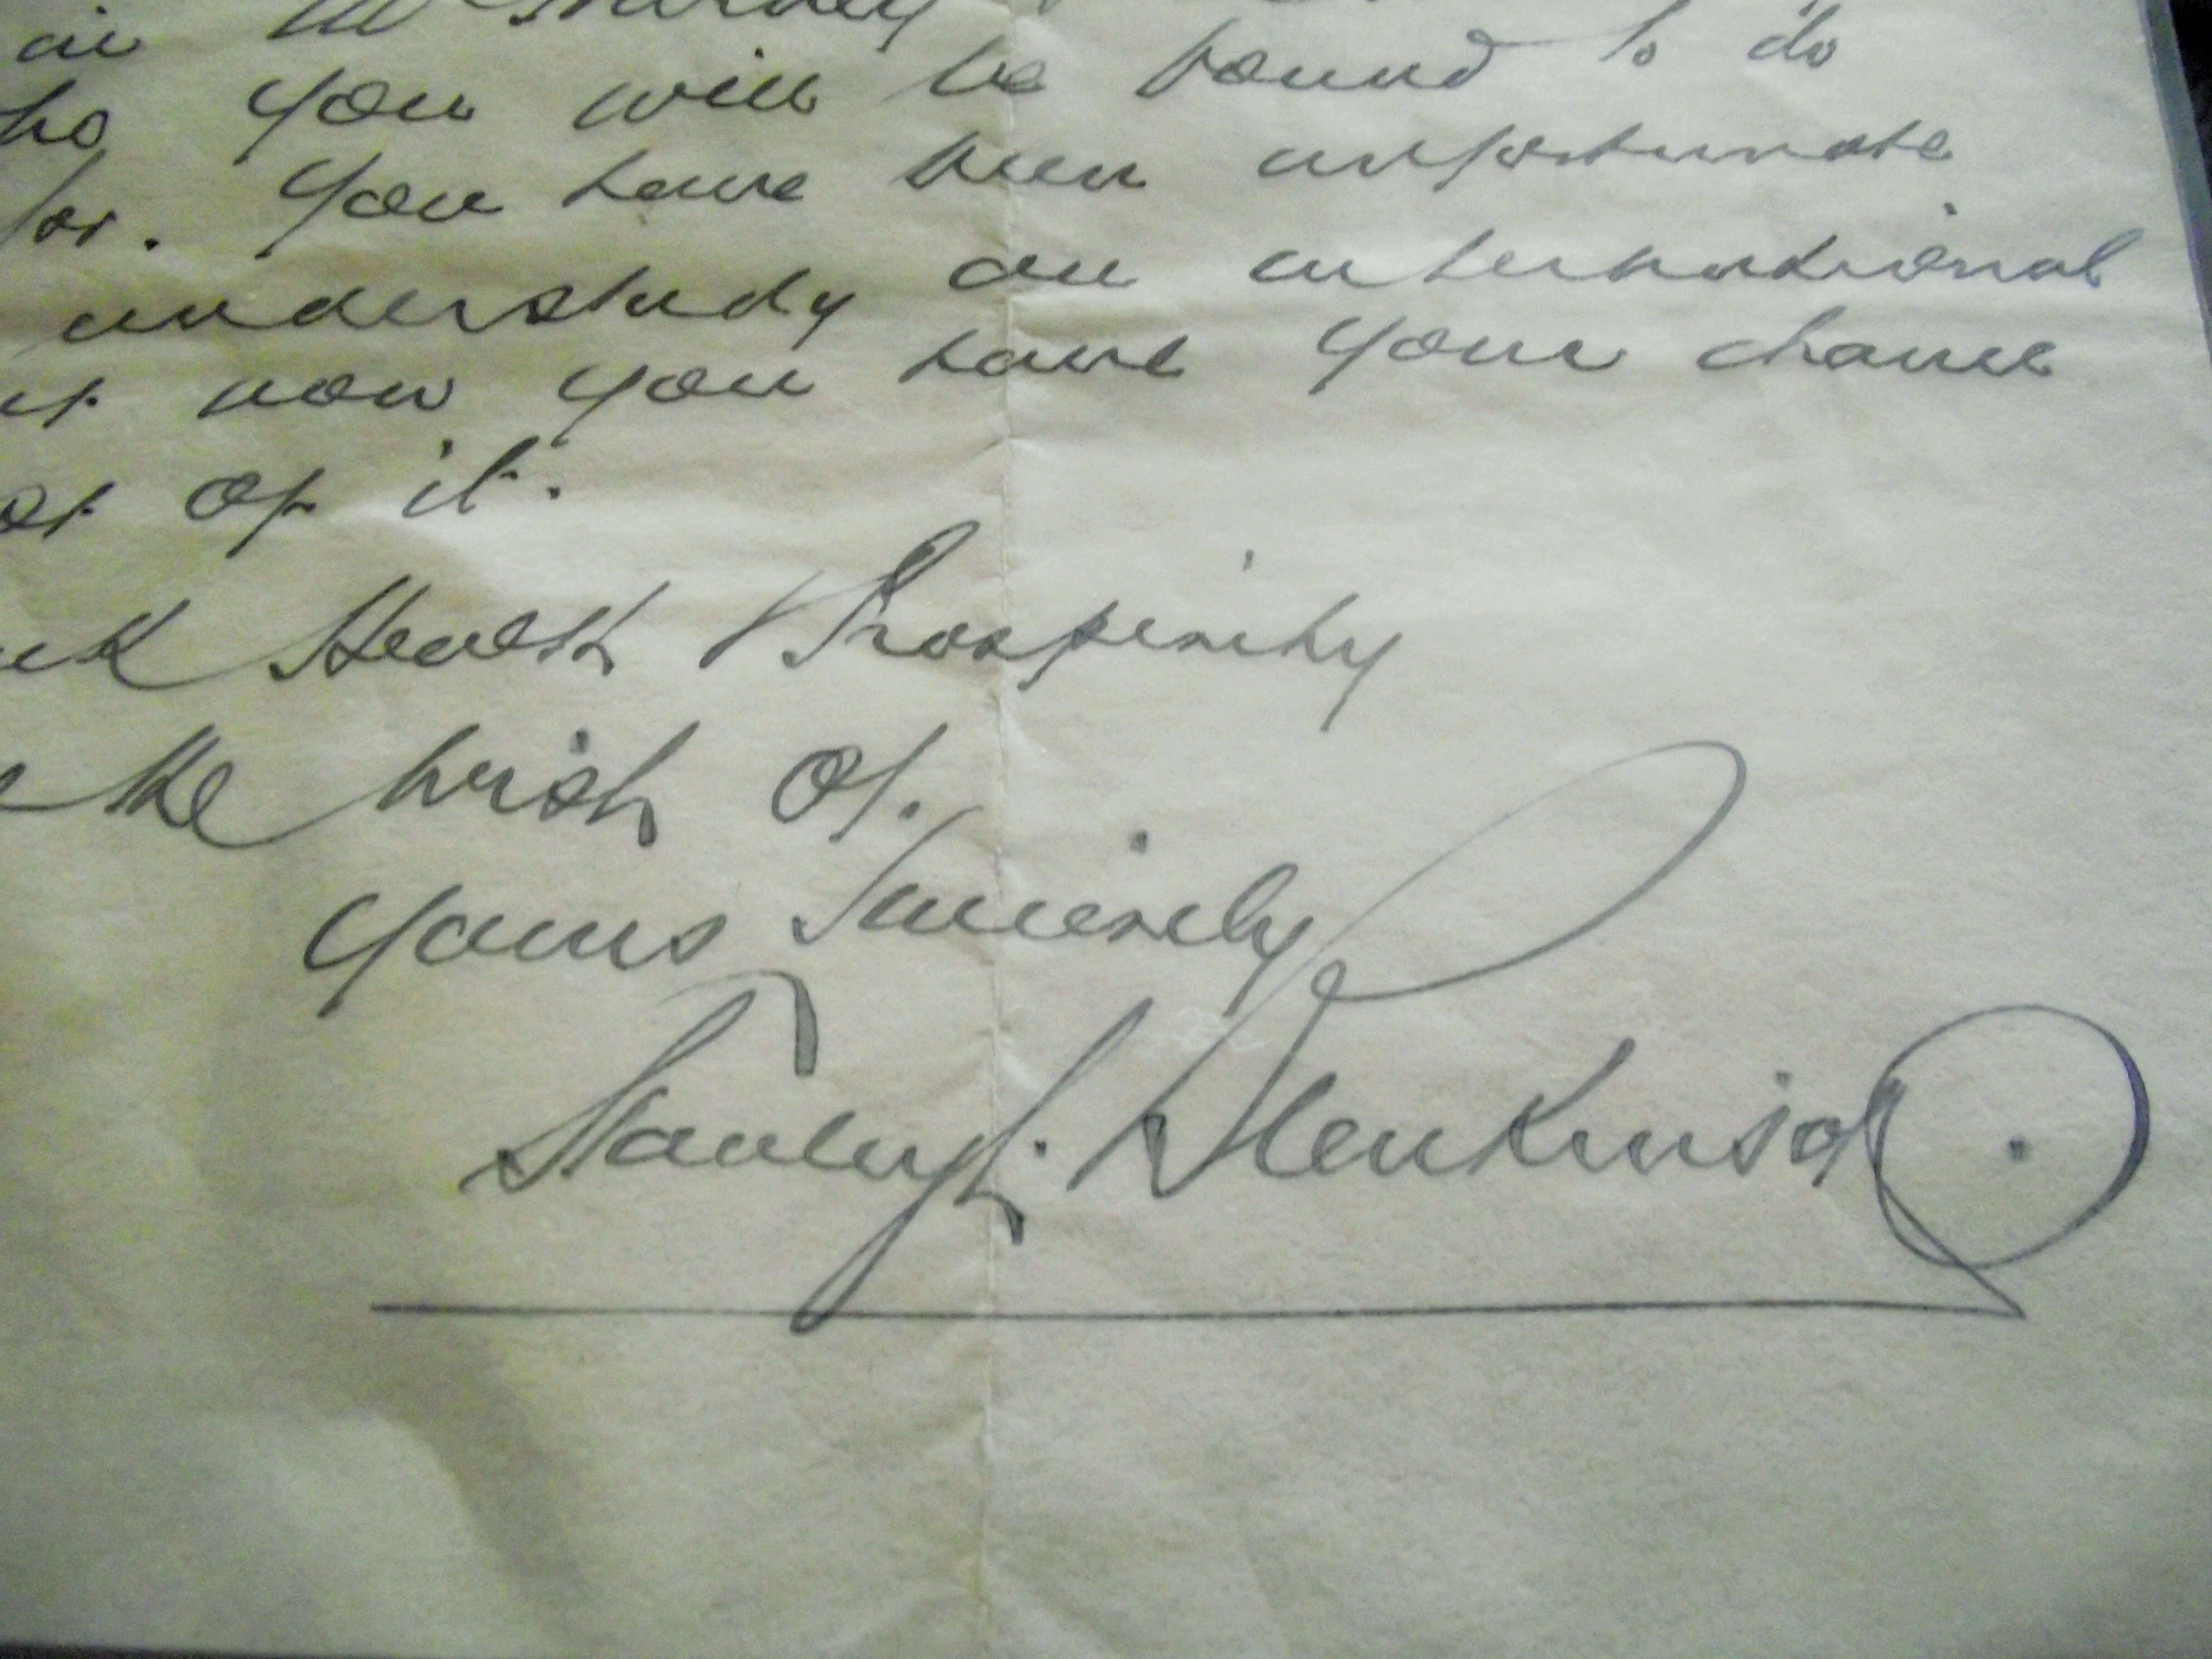 you will be bound to do
for. You have been unfortunate
understudy an international
now you have your chance
of it.
Health & Prosperity
the wish of.
Yours Sincerely
Stanley J. Blenkinsop.